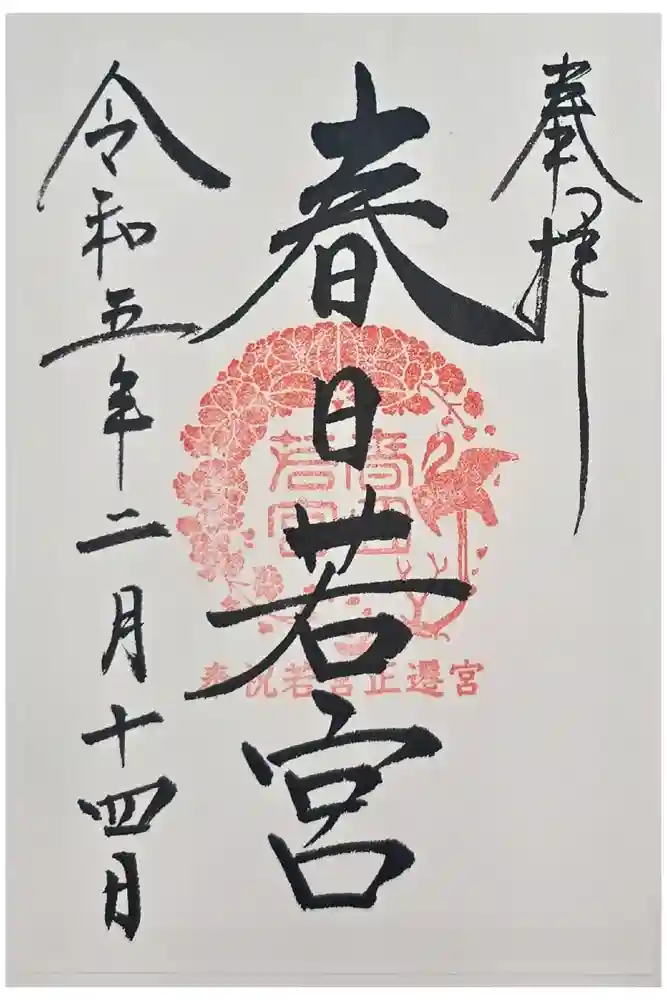 奉拝
春日若宮
春日
若宮
奉祝若宮正遷宮
令和五年二月十四日